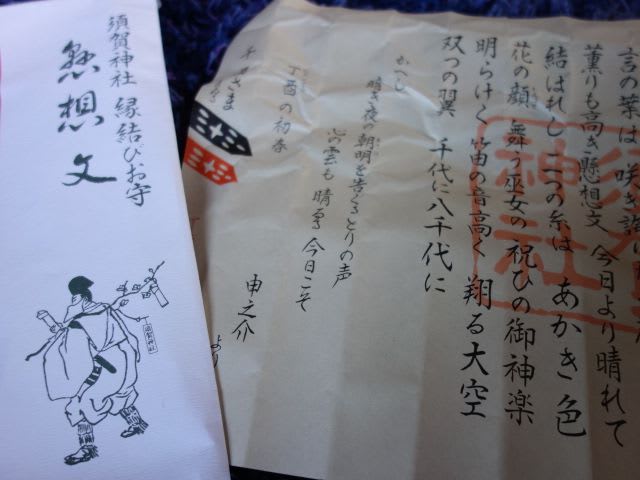 須賀神社 縁結びお守
懸想文
須賀神社
言の葉は 咲き
薫りも高き懸想文 今日より晴れて
結ばれし 二つの糸は あかき色
花の顔 舞う巫女の祝ひの御神楽
明らけく 笛の音高く 翔る大空
双つの翼 千代に八千代に
かへし
暗き夜の朝明を告ぐるとりの声
心の雲も 晴るる今日こそ
丁酉の初春
申之介
より
さま
神社